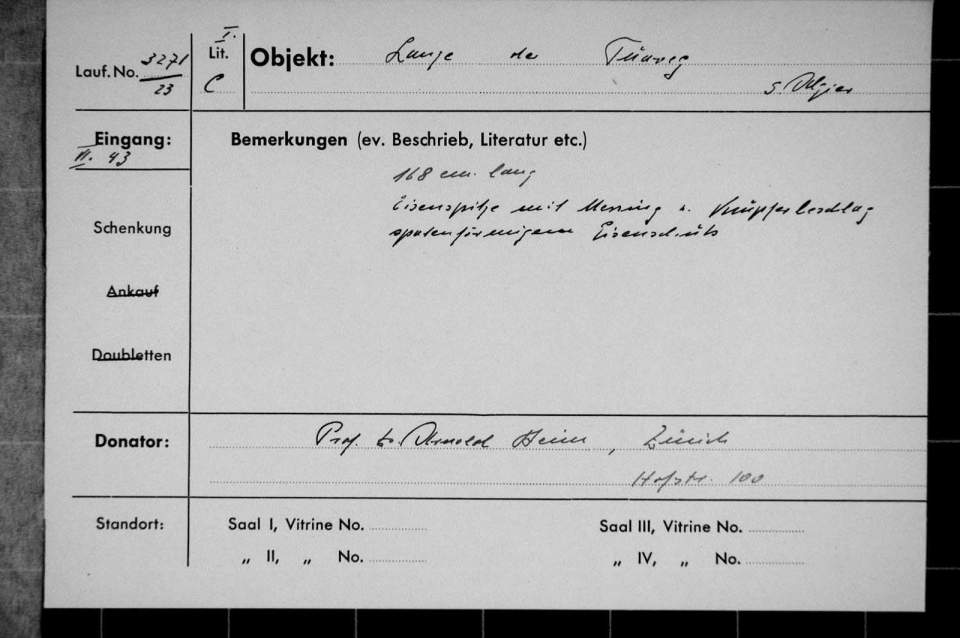 Lauf. No. 3271/23
I.
Lit. C
Objekt: Lanze der Tuareg
S. Algier
Eingang:
VI. 43
Bemerkungen (ev. Beschrieb, Literatur etc.)
168 cm. lang
Eisenspitze mit Messing u. Knüpferbeschlag
spatenförmigem Eisenschuh
Schenkung
Ankauf
Doubletten
Donator: Prof. Dr. Arnold Heim, Zürich
Hofstr. 100
Standort: Saal I, Vitrine No. Saal III, Vitrine No.
„ II, „ No. „ IV, „ No.